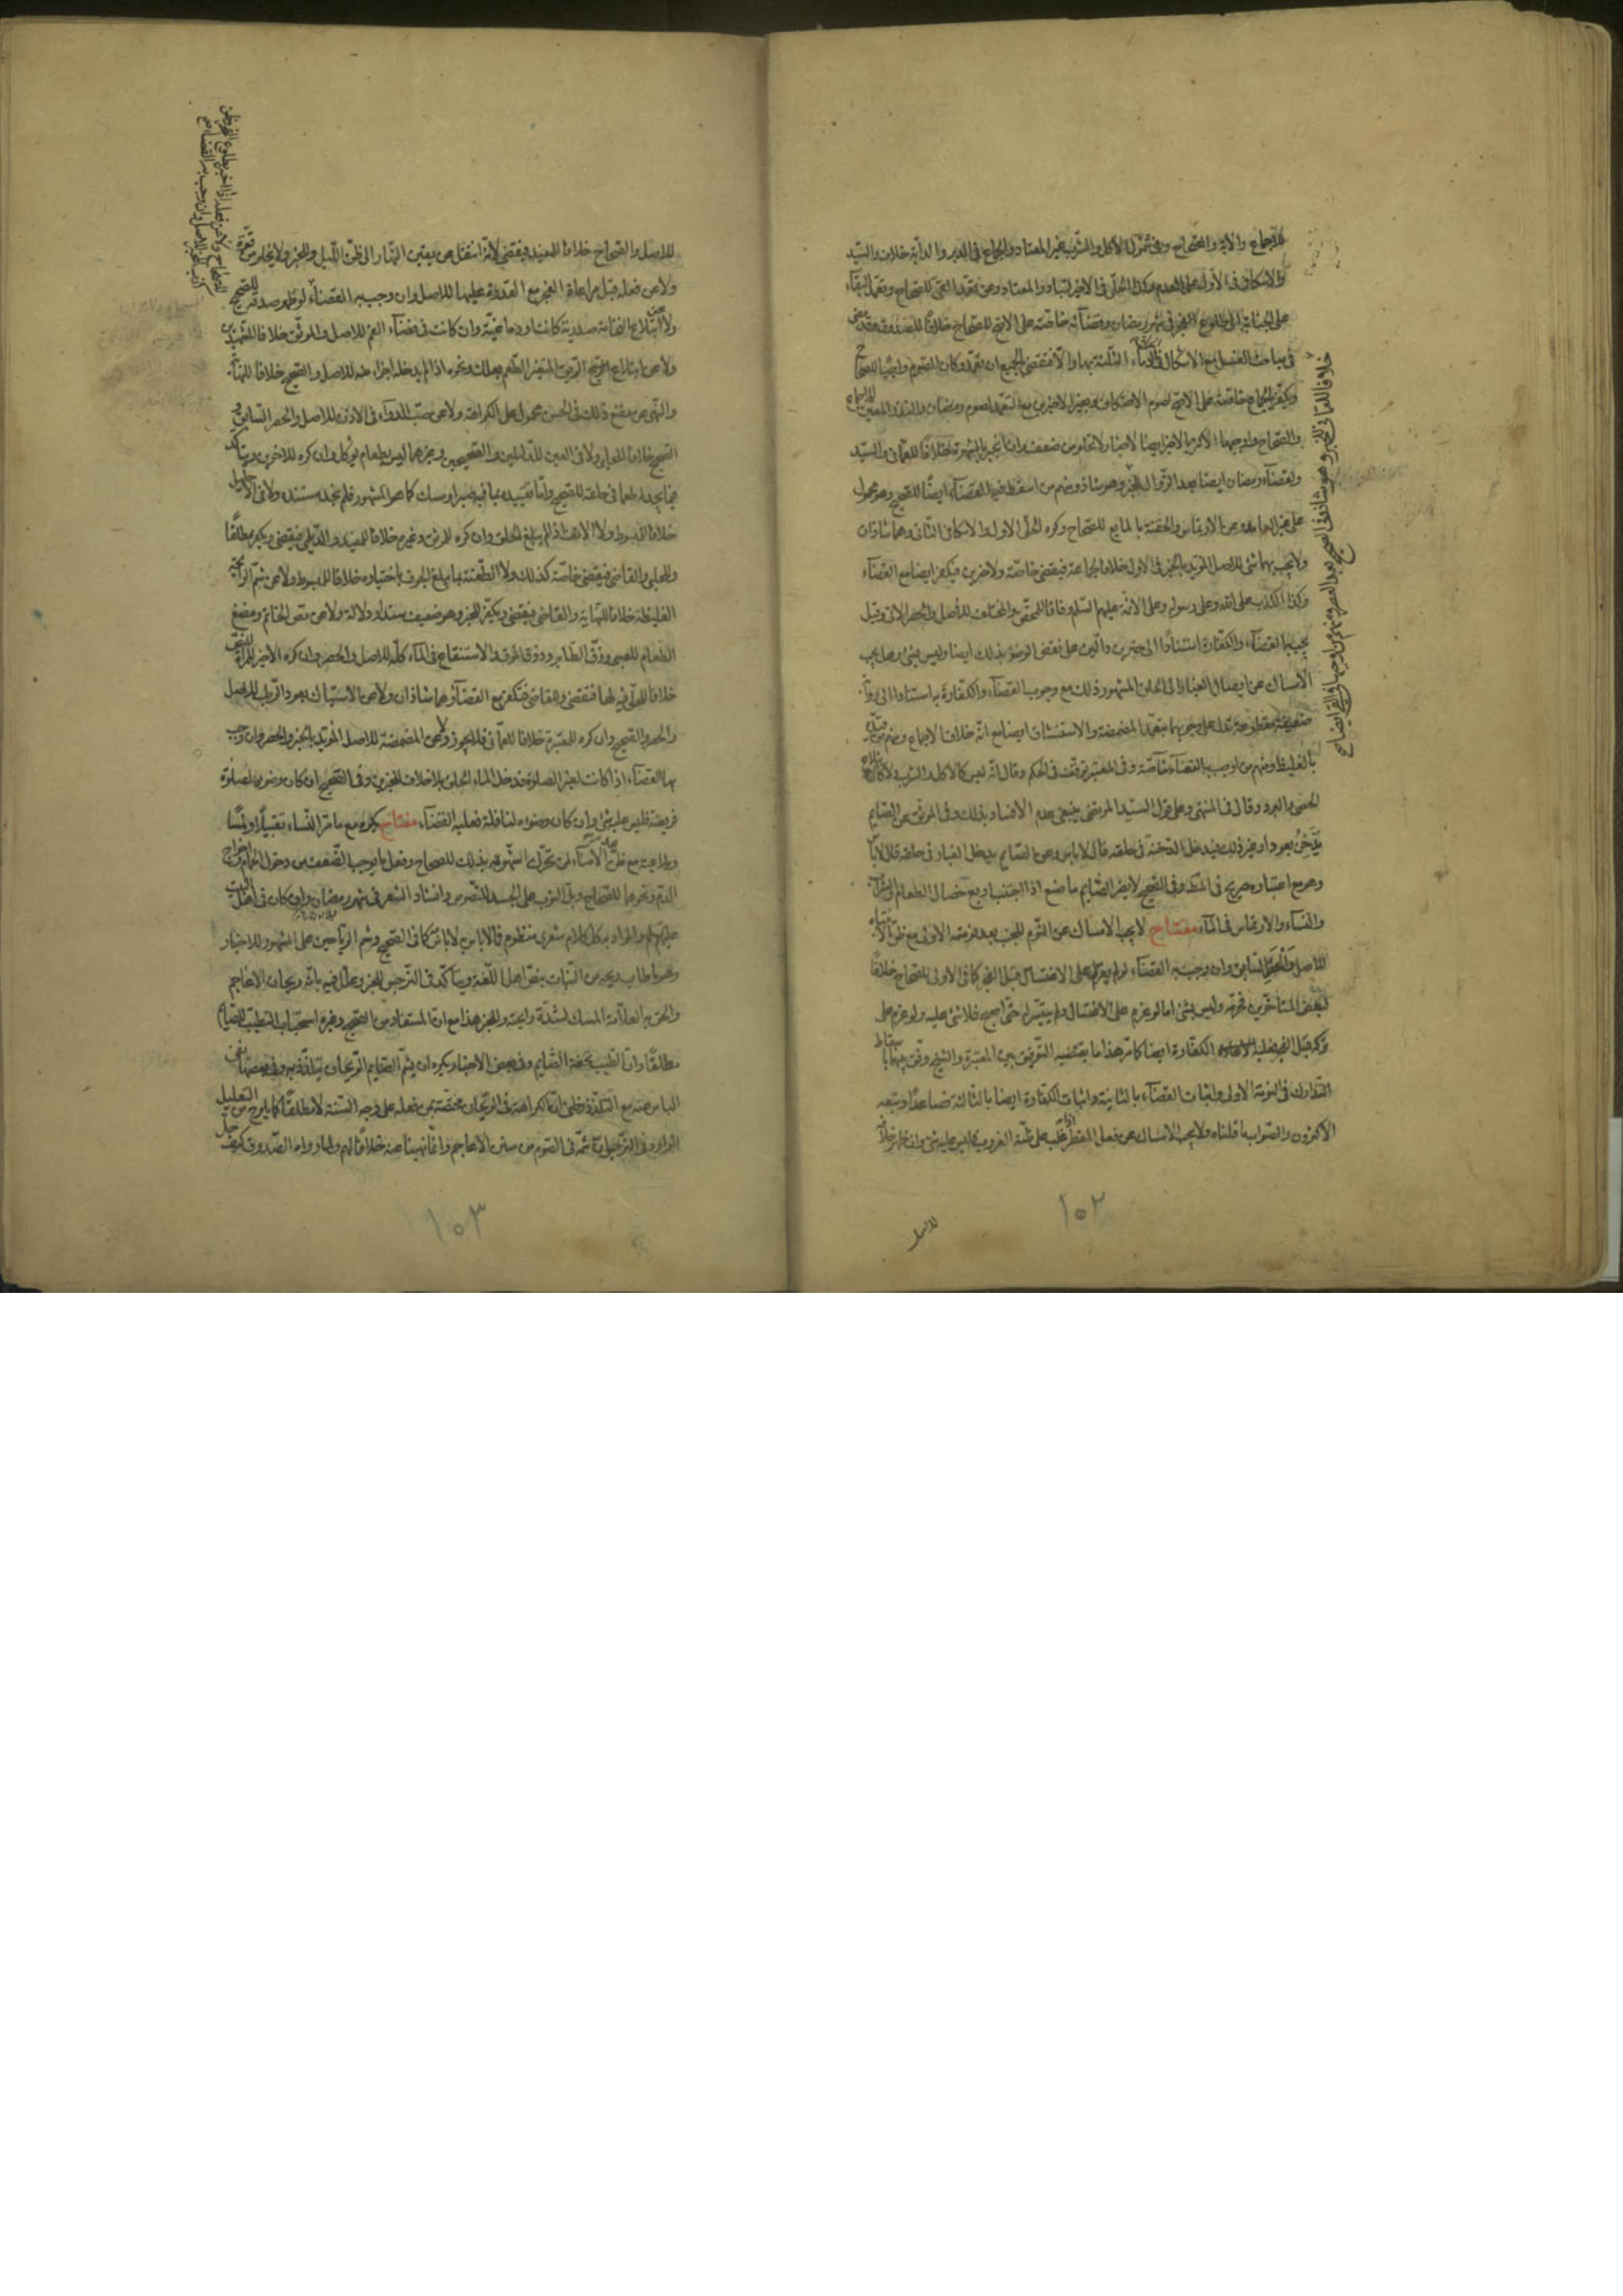 للاجماع والاية والصحاح وفى شمول الاكل والشرب غير المعتاد والجماع فى الدبر والدابة خلاف والسيد
والاسكافى فى الاول على العدم وكذا الحلى فى الاخير لتبادر المعتاد وعن تعمد القى للصحاح وتعمد البقاء
على الجنابة الى طلوع الفجر فى شهر رمضان وقضائه خاصة على الاصح للصحاح خلافا للصدوق وقد مضى
فى مباحث الغسل مع الاشكال فى الثلثة بها والا فيقضى الجميع ان تعمد وكان الصوم واجبا للصحاح
ويكفر الجماع خاصة على الاصح لصوم الاعتكاف وبغير الاخيرين مع التعمد لصوم رمضان والنذر المعين للاجماع
والصحاح واوجبها الاكثر بالاخير ايضا لاخبار لا تخلو من ضعف وان انجبر بالشهرة خلافا للعمانى والسيد
ولقضاء رمضان ايضا بعد الزوال للخبر وهو شاذ ومنهم من اسقط فيه القضاء ايضا للصحيح وهو محمول
على غير العامد وعن الارتماس والحقنة بالمايع للصحاح وكره الحلى الاول والاسكافى الثانى وهما شاذان
ولا يجب بهما شئ للاصل المؤيد بالخبر فى الاول خلافا لجماعة فيقضى خاصة ولاخرين فيكفر ايضا مع القضاء
وكذا الكذب على الله وعلى رسوله وعلى الائمة عليهم السلم وفاقا للمحقق والمختلف للاصل والحصر الاتى وقيل
يجب بها القضاء والكفارة استنادا الى خبرين دالين على نقض الوضوء بذلك ايضا وليس بشئ وهل يجب
الامساك عن ايصال الغبار الى الحلق المشهور ذلك مع وجوب القضاء والكفارة به استنادا الى رواية
ضعيفة مقطوعة تدل على وجوبهما بتعمد المضمضة والاستنشاق ايضا مع انه خلاف الاجماع ومنهم من قيده
بالغليظ ومنهم من اوجب به القضاء خاصة وفى المعتبر توقف فى الحكم وقال انه ليس كالاكل والشرب ولا كابتلاع
الحصى والبرد وقال فى المنتهى وعلى قول السيد المرتضى ينبغى عدم الافساد بذلك وفى الموثق عن الصايم
يتدخن بعود او بغير ذلك فيدخل الدخنة فى حلقه قال لا باس وعن الصايم يدخل الغبار فى حلقه قال لا باس
وهو مع اعتباره صريح فى المط وفى الصحيح لا يضر الصايم ما صنع اذا اجتنب اربع خصال الطعام والشراب
والنساء والارتماس فى الماء مفتاح لا يجب الامساك عن النوم للجنب بعد نومته الاولى مع ظن الانتباه
للاصل والحصر السابق وان وجب به القضاء لو لم يغتسل على الاغتسال قبل الفجر كما فى الاولى للصحاح خلافا
لبعض المتاخرين فحرمه وليس بشئ اما لو عزم على الاغتسال ولم يتيسر له حتى اصبح فلا شئ عليه ولو عزم على
تركه قبل الفجر فعليه الكفارة ايضا كما مر هذا ما يقتضيه التوفيق بين المعتبرة والشيخ وفق بينها باسقاط
التدارك فى النومة الاولى واثبات القضاء بالثانية واثبات الكفارة ايضا بالثالثة فصاعدا وتبعه
الاكثرون والصواب ما قلناه ولا يجب الامساك عن فعل المفطر لو غلب على ظنه الغروب فليس عليه شئ وان ظهر خلافه
خلافا للعمانى للخبر وهو شاذ وفى الصحيح بعد العصر ومنهم من اوجبها فى القى ايضا صح
للاصل
١٥٢
للاصل والصحاح خلافا للمفيد فيقضى لانه انتقل من يقين النهار الى ظن الليل وللخبر ولا يخلو من قوة
ولا عن فعله قبل مراعاة الفجر مع القدرة عليها للاصل وان وجب به القضاء لو ظهر صدقه للصحيح
ولا عن ابتلاع النخامة صدرية كانت او دماغية وان كانت فى فضاء الفم للاصل والموثق خلافا للشهيدين
ولا عن ابتلاع الريق المتغير الطعم بعلك ونحوه اذا لم يدخله اجزاء منه للاصل والصحيح خلافا للنهاية
والنهى عن مضغ ذلك فى الحسن محمول على الكراهة ولا عن صب الدواء فى الاذن للاصل والحصر السابق و
الصحيح خلافا للحلبى ولا فى العين للدليلين والصحيحين وغيرهما ليس بطعام يؤكل وان كره للاخرى ويتاكد
فيما يجد له طعما فى حلقه للصحيح واما تقييده بما فيه صبر او مسك كما هو المشهور فلم نجد مستنده ولا فى الاحليل
خلافا للمبسوط ولا الانف اذا لم يبلغ الحلق وان كره للموثق وغيره خلافا للمفيد والديلمى فيقضى ويكفر مطلقا
وللحلبى والقاضى فيقضى خاصة كذلك ولا الطعنة بما يبلغ الجوف باختياره خلافا للمبسوط ولا عن شم الرائحة
الغليظة خلافا للنهاية والقاضى فيقضى ويكفر للخبر وهو ضعيف سندا ودلالة ولا عن مص الخاتم ومضغ
الطعام للصبى وزق الطاير وذوق المرق والاستنقاع فى الماء كله للاصل والحصر وان كره الاخير للمراة للنص
خلافا للحلى فيه لها فتقضى وللقاضى فتكفر مع القضاء وهما شاذان ولا عن الاستياك بعود الرطب للاصل
والحصر والصحيح وان كره للمعتبرة خلافا للعمانى فلا يجوز ولا عن المضمضة للاصل المؤيد بالخبر والحصر وان وجب
بها القضاء اذا كانت لغير الصلوة فدخل الماء الحلق بلا خلاف للخبرين وفى الصحيح ان كان وضوءه لصلوة
فريضة فليس عليه شئ وان كان وضوءه لنافلة فعليه القضاء مفتاح يكره مع ما مر النساء تقبيلا ولمسا
وملاعبة مع ظن الامناء لمن تحرك شهوته بذلك للصحاح وفعل ما يوجب الضعف من دخول الحمام واخراج
الدم ونحوهما للصحاح وبل الثوب على الجسد للنصوص وانشاد الشعر فى شهر رمضان وان كان فى اهل البيت
عليهم السلم والمراد به كل كلام شعرى منظوم فالا باس لا باس كما فى الصحيح وشم الرياحين على المشهور للاخبار
وهو ما طاب ريحه من النبات بنص اهل اللغة ويتاكد فى النرجس للخبر وعلل فيه بانه ريحان الاعاجم
والحق به العلامة المسك لشدة رايحته وللخبر هذا مع ان المستفاد من الصحيح وغيره استحباب التطيب للصيام
مطلقا وان الطيب تحفة الصايم وفى بعض الاخبار يكره ان يشم الصايم الريحان يتلذذ به وفى بعضها نفى
الباس عنه مع التلذذ فظنى ان الكراهة فى الريحان مختصة بمن فعله على وجه السنة لا مطلقا كما يلوح من التعليل
الوارد فى النرجس بان شمه فى الصوم من سنن الاعاجم وانما نهينا عنه خلافا لهم ولما رواه الصدوق كيف حل
١٥٣